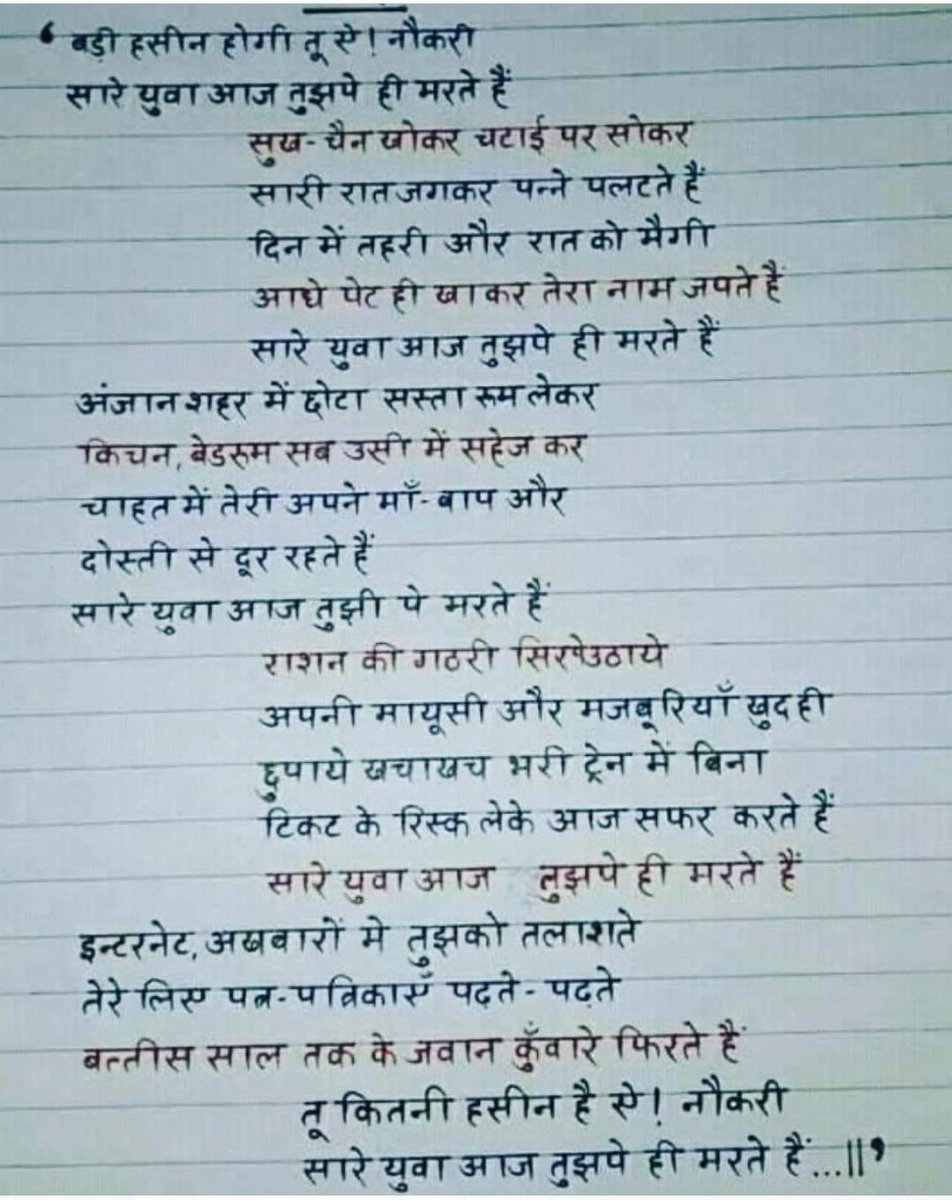 ‘ बड़ी हसीन होगी तू ऐ! नौकरी
सारे युवा आज तुझपे ही मरते हैं
सुख-चैन खोकर चटाई पर सोकर
सारी रात जगकर पन्ने पलटते हैं
दिन में तहरी और रात को मैगी
आधे पेट ही खाकर तेरा नाम जपते हैं
सारे युवा आज तुझपे ही मरते हैं
अंजान शहर में छोटा सस्ता रूम लेकर
किचन, बेडरुम सब उसी में सहेज कर
चाहत में तेरी अपने माँ-बाप और
दोस्ती से दूर रहते हैं
सारे युवा आज तुझी पे मरते हैं
राशन की गठरी सिरपेउठाये
अपनी मायूसी और मजबूरियाँ खुद ही
छुपाये खचाखच भरी ट्रेन में बिना
टिकट के रिस्क लेके आज सफर करते हैं
सारे युवा आज तुझपे ही मरते हैं
इन्टरनेट, अखबारों मे तुझको तलाशते
तेरे लिए पत्र-पत्रिकाएँ पढ़ते-पढ़ते
बत्तीस साल तक के जवान कुँवारे फिरते हैं
तू कितनी हसीन है ऐ! नौकरी
सारे युवा आज तुझपे ही मरते हैं...॥’